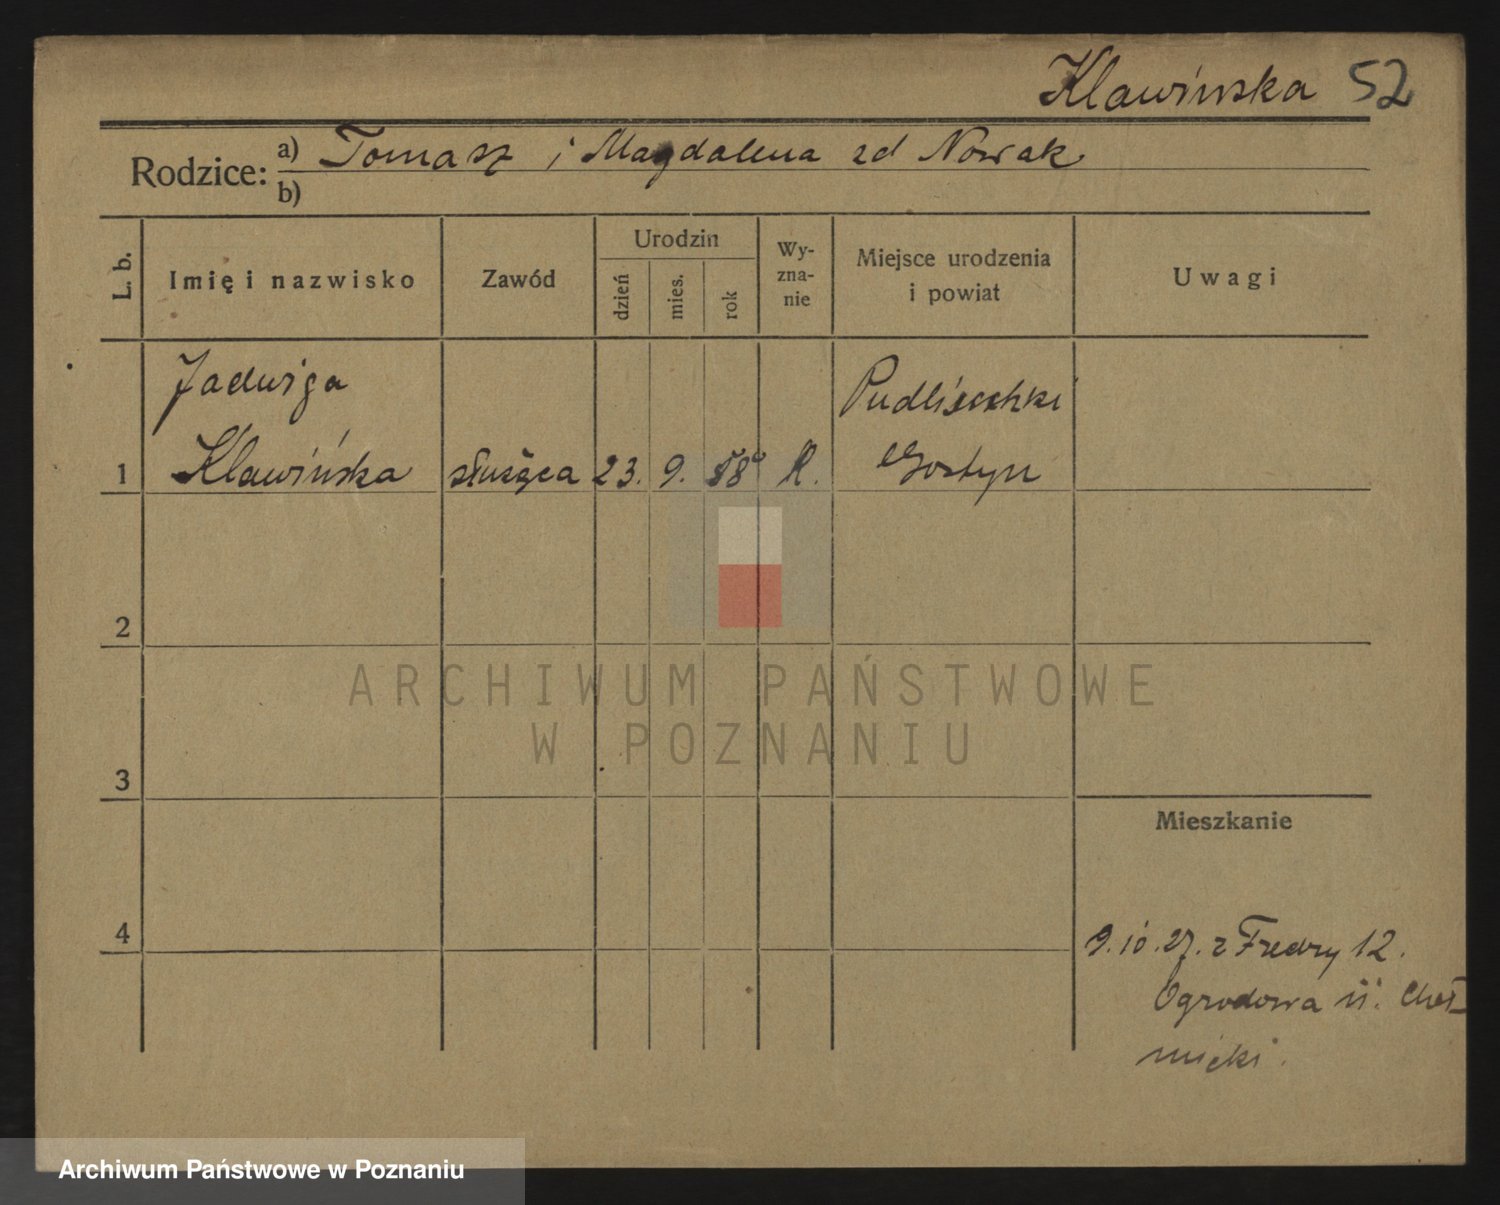 Klawińska 52
Rodzice: a) Tomasz i Magdalena zd Nowak
b)
L. b. Imię i nazwisko Zawód Urodzin dzień mies. rok Wy-zna-nie Miejsce urodzenia i powiat Uwagi
Jadwiga Pudliszki
1 Klawińska służąca 23. 9. R. Gostyń
2
ARCHIWUM PAŃSTWOWE
W POZNANIU
3
Mieszkanie
4
9.10.27. z Fredry 12.
Ogrodowa 11. Cheł-
micki.
Archiwum Państwowe w Poznaniu